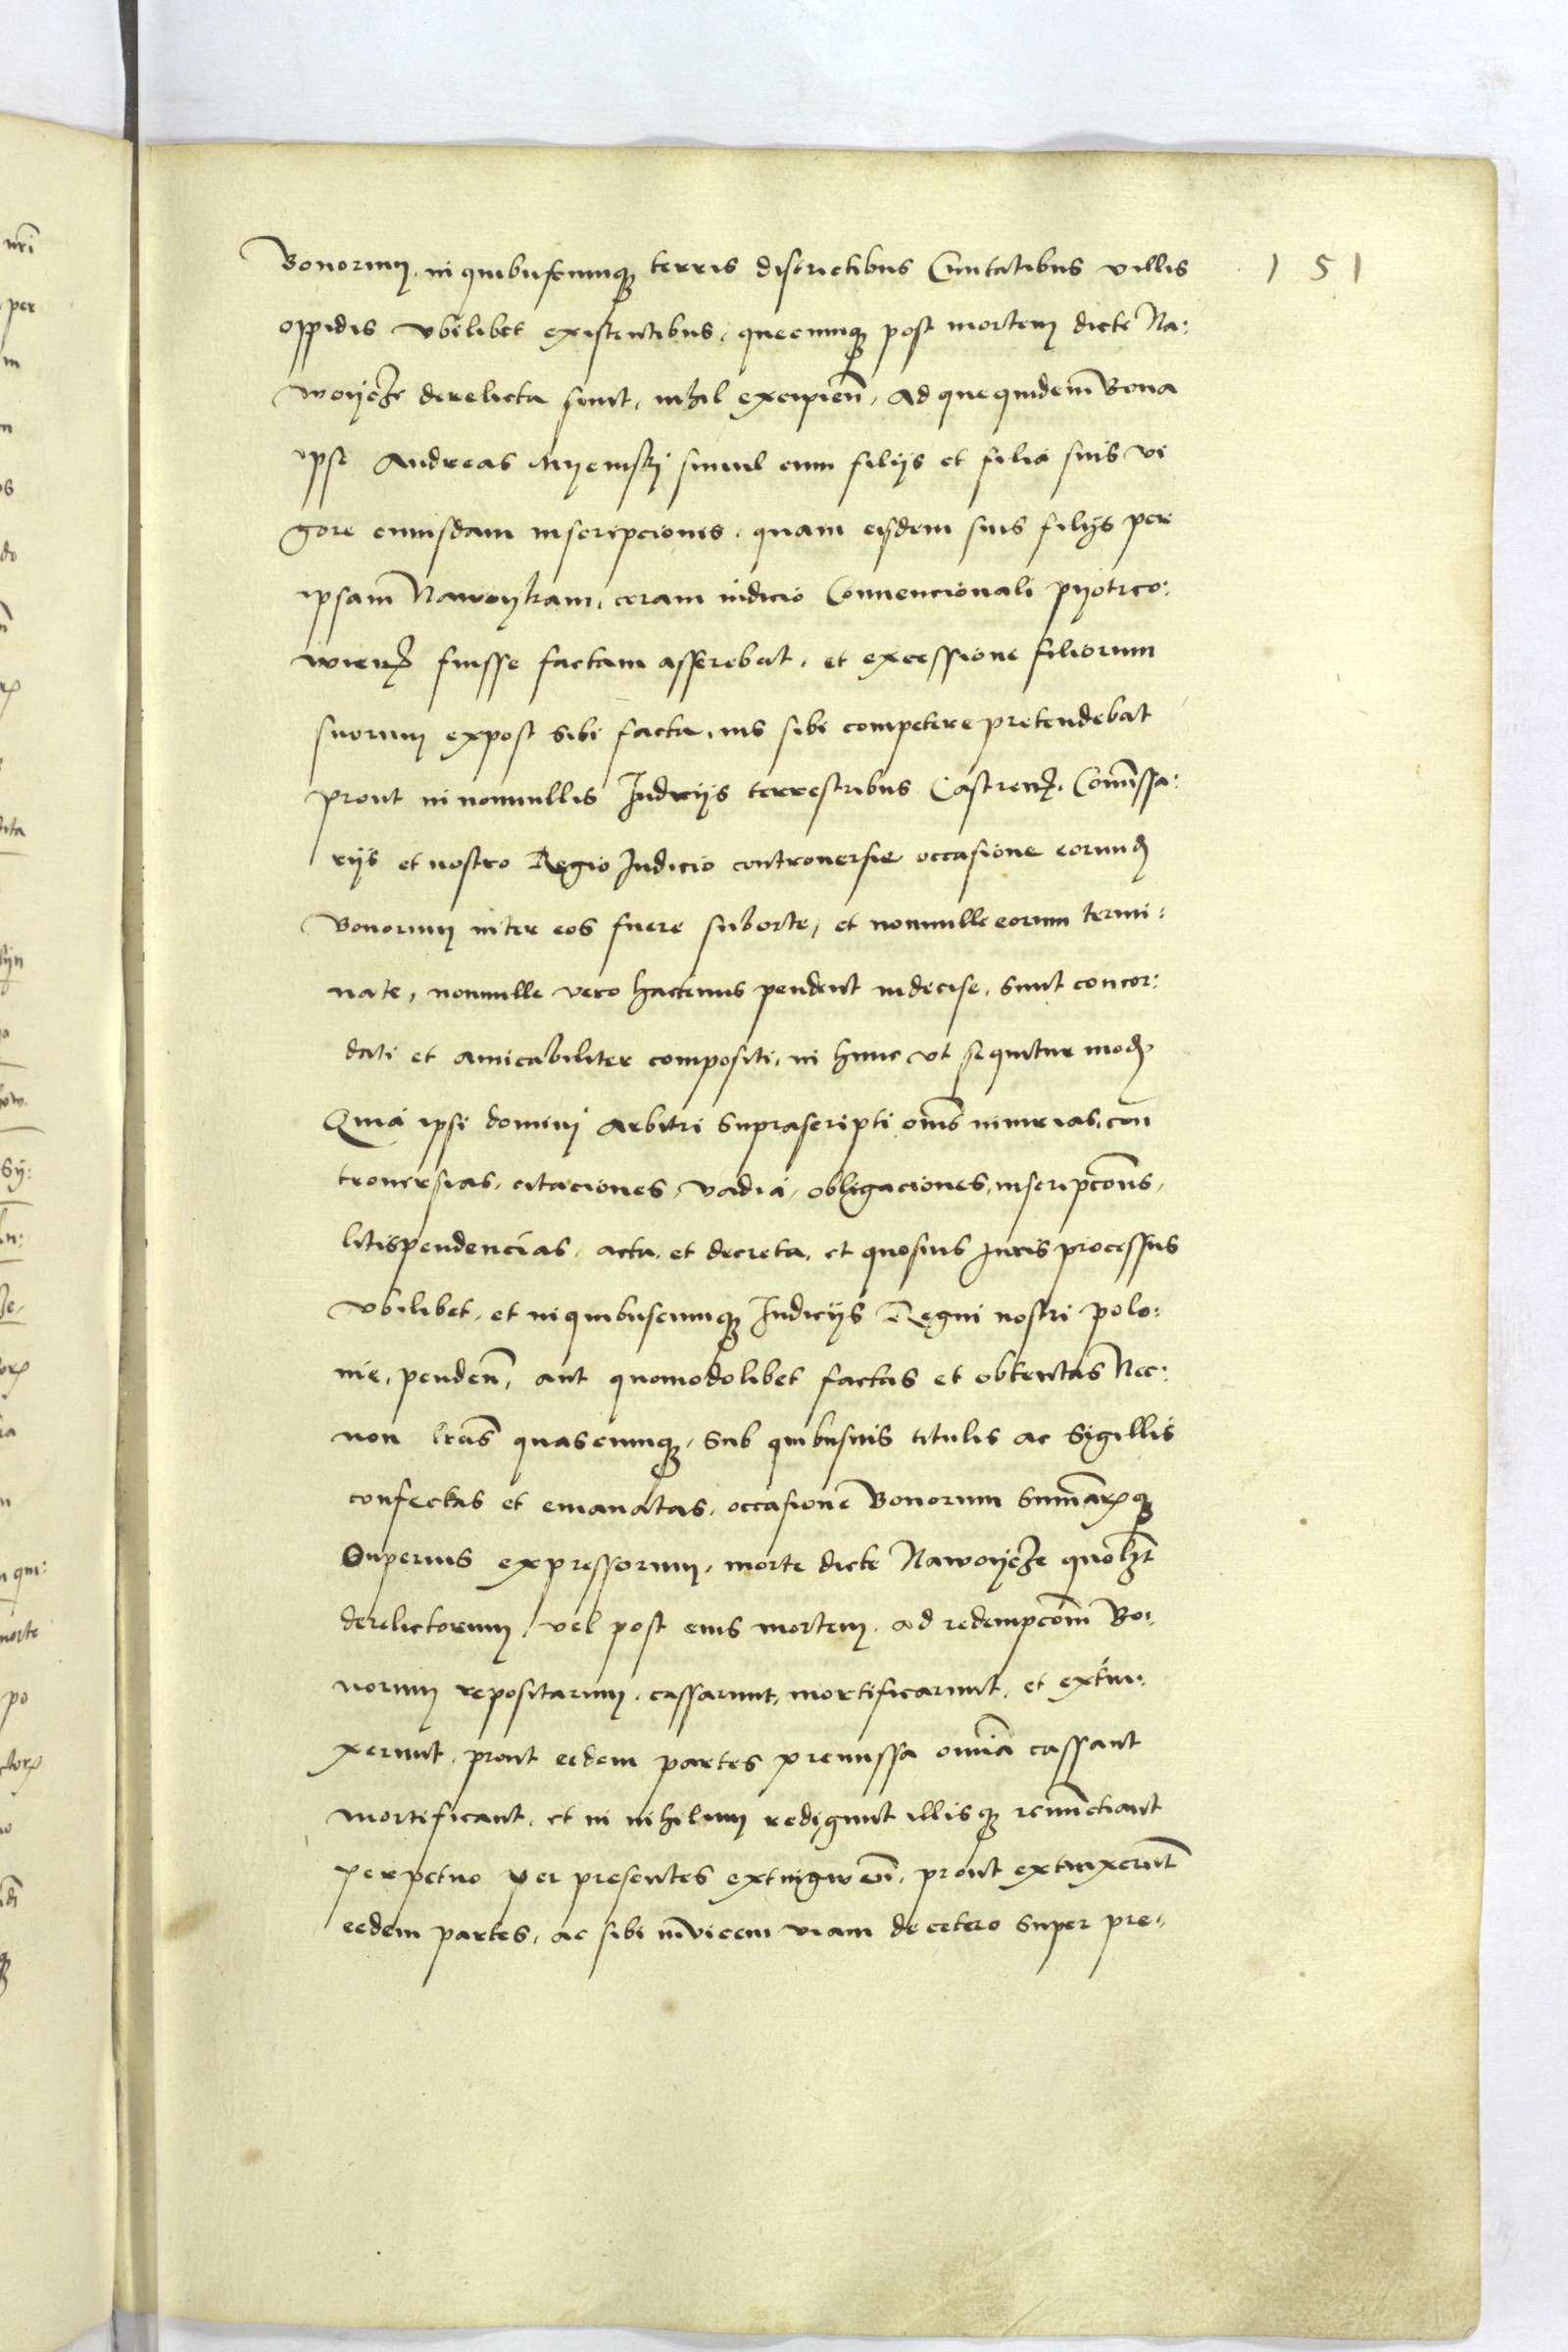 151
Bonorum, in quibuscunqz terris districtibus Ciuitatibus villis
oppidis vbilibet existentibus, quecunqz post mortem dicte Na:
woyczke derelicta sunt, nihil excipien̄, Ad que quidem̄ Bona
ipse Andreas simul cum filijs et filia suis vi
gore cuiusdam inscripcionis, quam eisdem suis filijs per
ipsam̄ Nawoykam, coram iudicio Conuencionali pyotrco:
wienẜ fuisse factam asserebat, et excessione filiorum
suorum expost sibi facta, ius sibi competere pretendebat
prout in nonnullis Judicijs terrestribus Castrenẜ, Com̄issa:
rijs et nostro Regio Judicio controuersie occasione eorund
Bonorum inter eos fuere suborte, et nonnulle eorum termi:
nate, nonnulle vero hactenus pendent indecise, sunt concor:
dati et amicabiliter compositi, in hunc vt sequitur mod
Quia ipsi domini Arbitri suprascripti om̄s iniurias, con
trouersias, citaciones, vadia, obligaciones, inscripc̄ones,
litispendencias, acta, et decreta, et quosuis Juris processus
vbilibet, et in quibuscunqz Judicijs Regni nostri polo:
nie, penden̄, aut quomodolibet factas et obtentas Nec:
non l̄ras quascunqz, sub quibusuis titulis ac sigillis
confectas et emanatas, occasione Bonorum sum̄arꝝqz
Superius expressorum, morte dicte Nawoyczke quol̄zt
derelictorum, vel post eius mortem, ad redempc̄onem Bo:
norum repositarum, cassarunt, mortificarunt, et extin:
xerunt, prout eedem partes premissa omnia cassant
mortificant, et in nihilum redigunt illisqz renunctiant
perpetuo per presentes extingwen̄, prout extinxerunt
eedem partes, ac sibi inuicem viam de cetero super pre: